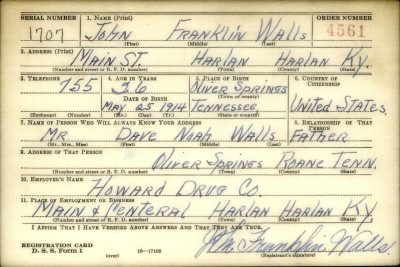 SERIAL NUMBER 1. NAME (Print) ORDER NUMBER
1707 John Franklin Walls 4561
(First) (Middle) (Last)
2. ADDRESS (Print)
Main St. Harlan Harlan Ky.
(Number and street or R. F. D. number) (Town) (County) (State)
3. TELEPHONE 4. AGE IN YEARS 5. PLACE OF BIRTH 6. COUNTRY OF CITIZENSHIP
755 26 Oliver Springs
DATE OF BIRTH (Town or county)
May 25 1914 Tennessee, United States
(Exchange) (Number) (Mo.) (Day) (Yr.) (State or country)
7. NAME OF PERSON WHO WILL ALWAYS KNOW YOUR ADDRESS 8. RELATIONSHIP OF THAT PERSON
Mr Dave Noah Walls Father
(Mr., Mrs., Miss) (First) (Middle) (Last)
9. ADDRESS OF THAT PERSON
Oliver Springs Roane Tenn.
(Number and street or R. F. D. number) (Town) (County) (State)
10. EMPLOYER'S NAME
Howard Drug Co.
11. PLACE OF EMPLOYMENT OR BUSINESS
Main & Centeral Harlan Harlan Ky
(Number and street or R. F. D. number) (Town) (County) (State)
I AFFIRM THAT I HAVE VERIFIED ABOVE ANSWERS AND THAT THEY ARE TRUE.
REGISTRATION CARD
D. S. S. FORM 1 (over) 16—17105
Franklin Walls
(Registrant's signature)